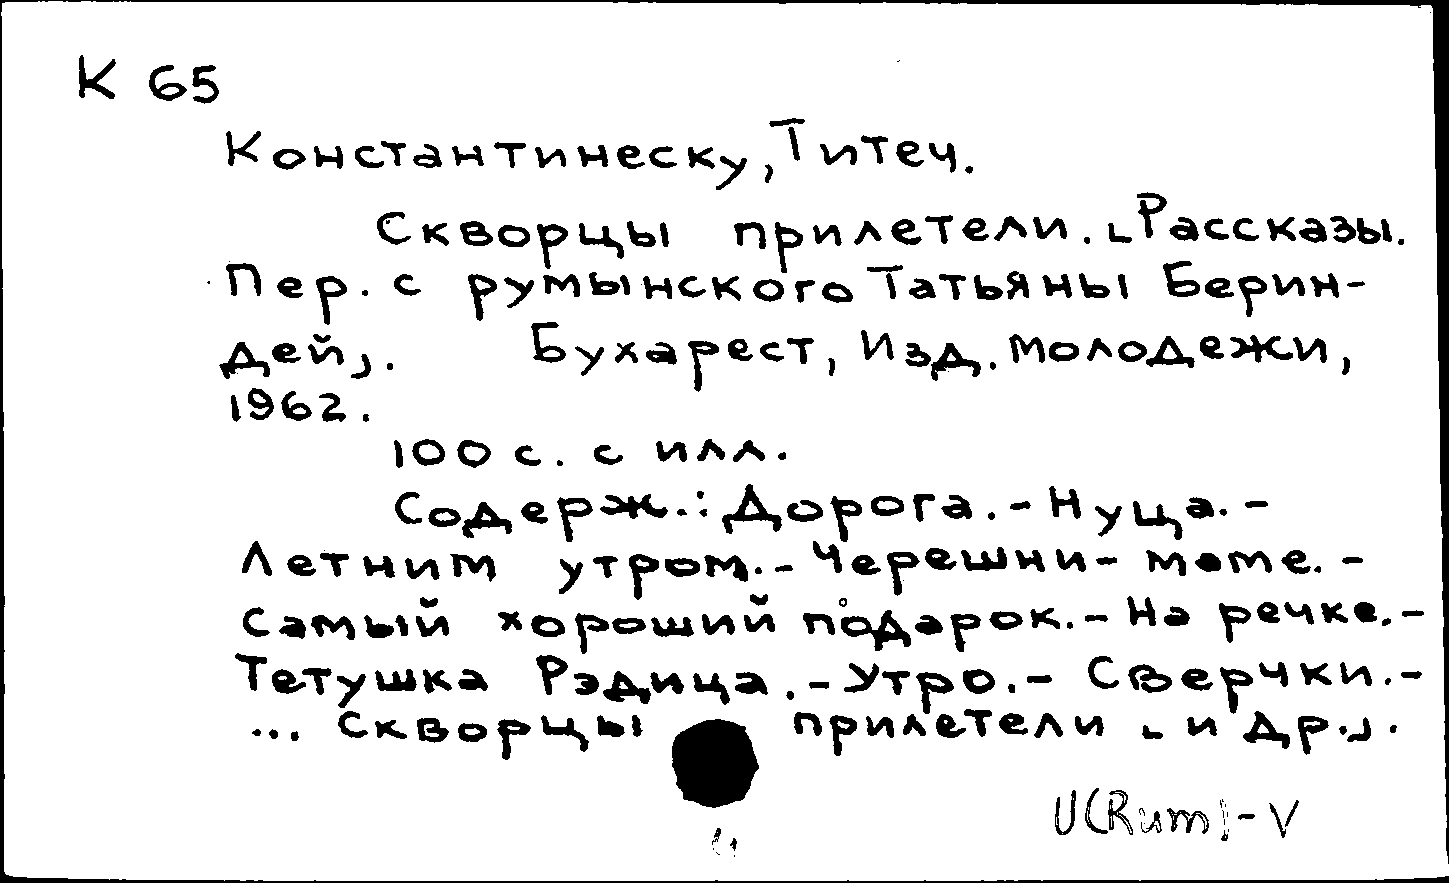 К 65
Константинеску, Титеч.
Скворцы прилетели. [Рассказы.
Пер. с румынского Татьяны Берин-
дей]. Бухарест, Изд. молодежи,
1962.
100 с. с илл.
Содерж.: Дорога. - Нуца. -
Летним утром. - Черешни - моте. -
Самый хороший подарок. - На речке. -
Тетушка Рэдица. - Утро. - Сверчки. -
... Скворцы прилетели [и др.].
U(Rum)-V